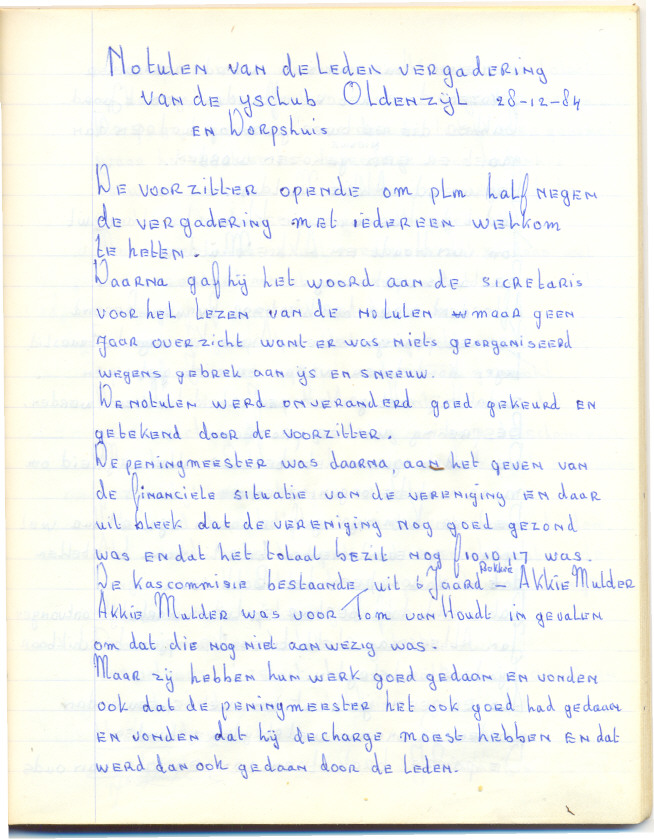 Notulen van de Leden vergadering
van de ysclub Oldenzijl 28-12-84
en Dorpshuis
De voorzitter opende om plm half negen
de vergadering met iedereen welkom
te heten.
Daarna gaf hij het woord aan de sicretaris
voor het lezen van de notulen maar geen
Jaar overzicht want er was niets georganiseerd
wegens gebrek aan ijs en sneeuw.
De notulen werd onveranderd goed gekeurd en
getekend door de voorzitter.
De peningmeester was daarna, aan het geven van
de financiele situatie van de vereniging en daar
uit bleek dat de vereniging nog goed gezond
was en dat het totaal bezit nog f 10.10,17 was.
De kascommisie bestaande uit Tjaard Bakker – Akkie Mulder
Akkie Mulder was voor Tom van Houdt in gevalen
om dat die nog niet aanwezig was.
Maar zij hebben hun werk goed gedaan en vonden
ook dat de peningmeester het ook goed had gedaan
en vonden dat hij decharge moest hebben en dat
werd dan ook gedaan door de leden.